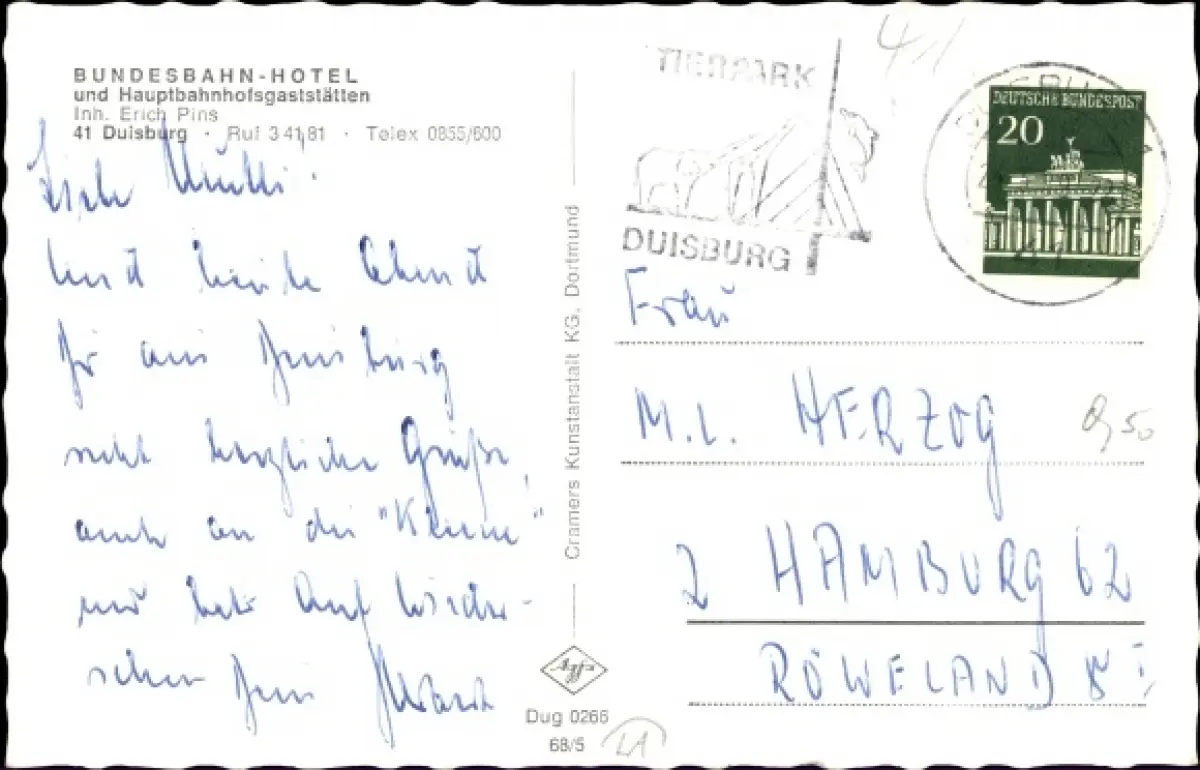 BUNDESBAHN-HOTEL
und Hauptbahnhofsgaststätten
Inh. Erich Pins
41 Duisburg · Ruf 3 41 81 · Telex 0855/600
TIERPARK
DUISBURG
41
DEUTSCHE BUNDESPOST
20
41
Liebe Mutti!
und heute Abend
Dir aus Duisburg
recht herzliche Grüße,
auch an die "Kleine"
und Auf Wieder-
sehen Dein
Cramers Kunstanstalt KG. Dortmund
Frau
M. L. HERZOG
0,50
2 HAMBURG 62
RÖWELAND 8
Agfa
Dug 0266
68/5